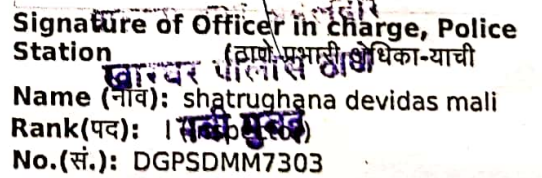 Signature of Officer in charge, Police
Station (ठाणे प्रभारी अधिका-याची
खारघर पोलीस ठाणे
Name (नाव): shatrughana devidas mali
Rank(पद): I (Inspector)
नवी मुंबई
No.(सं.): DGPSDMM7303